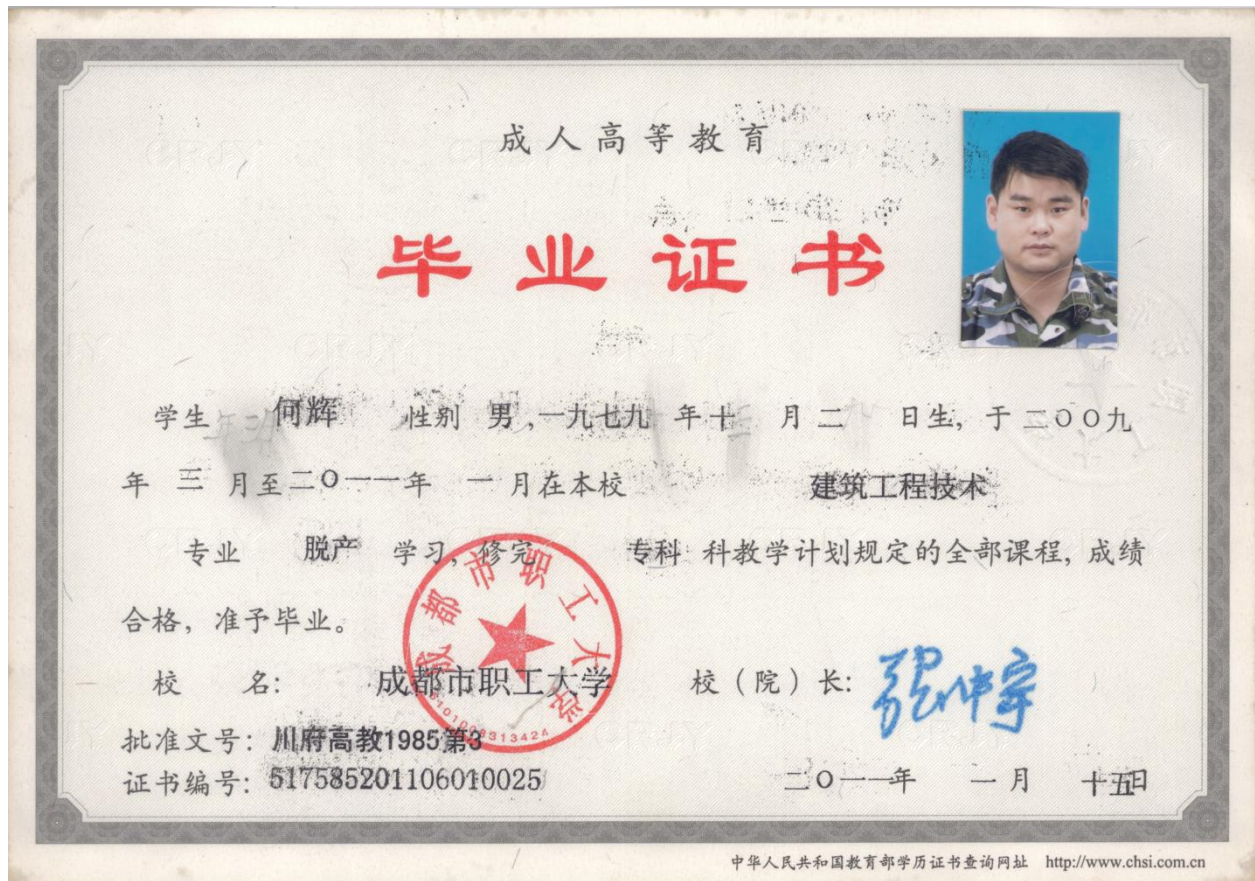 成人高等教育
毕业证书
学生 何辉 性别 男，一九七九 年十 月二 日生，于二〇〇九
年 三 月至二〇一一年 一 月在本校 建筑工程技术
专业 脱产 学习，修完 专科 科教学计划规定的全部课程，成绩
合格，准予毕业。
校 名： 成都市职工大学 校（院）长：
成都市职工大学
5101008313424
批准文号：川府高教1985第3
证书编号：517585201106010025 二〇一一年 一月 十五日
中华人民共和国教育部学历证书查询网址 http://www.chsi.com.cn